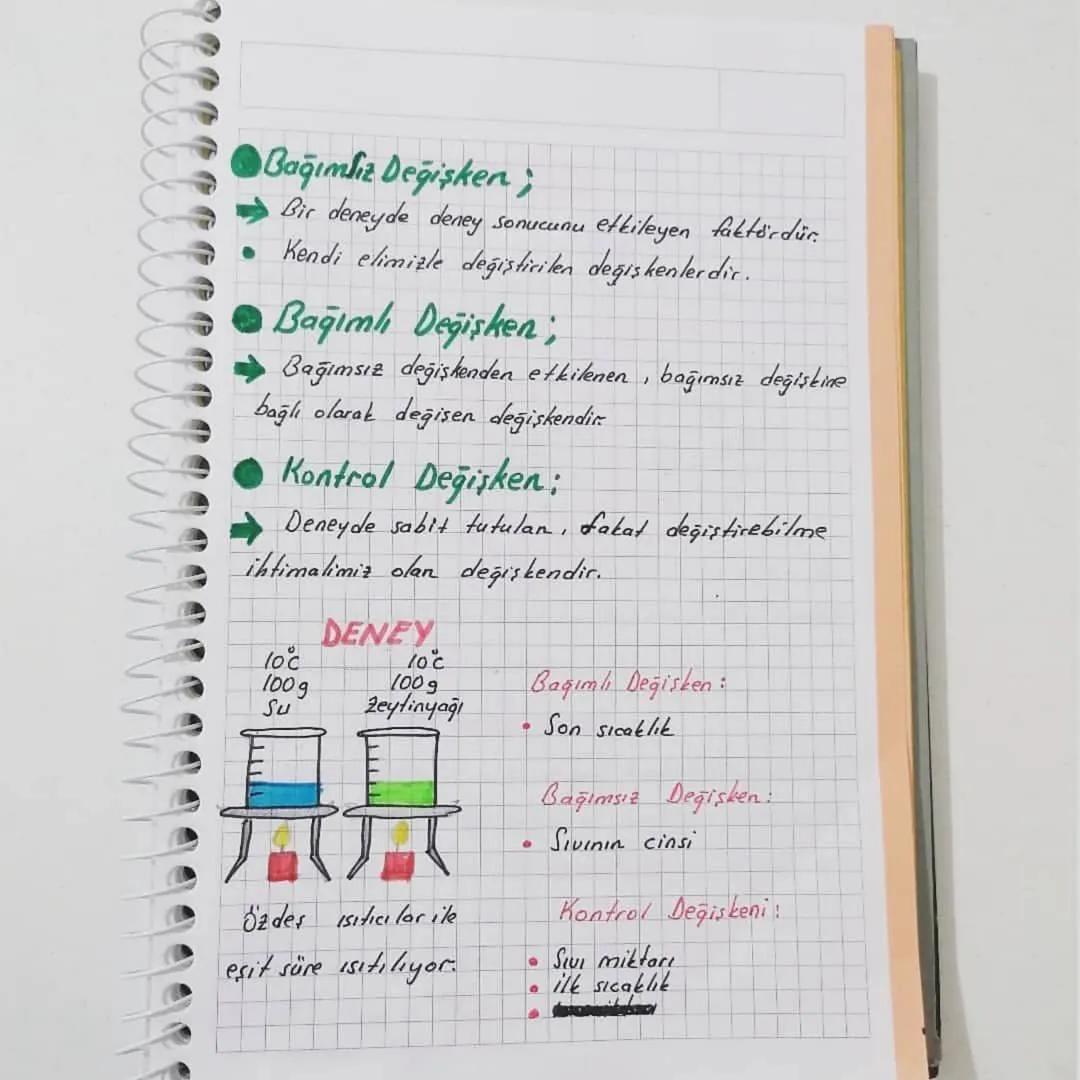 Bağımsız Değişken;
Bir deneyde deney sonucunu etkileyen faktördür.
Kendi elimizle değiştirilen değişkenlerdir.
Bağımlı Değişken;
Bağımsız değişkenden etkilenen, bağımsız değişkine
bağlı olarak değişen değişkendir.
Kontrol Değişken;
Deneyde sabit tutulan, fakat değiştirebilme
ihtimalimiz olan değişkendir.
DENEY
10°C
100g
Su
10°C
100g
Zeytinyağı
Özdeş ısıtıcılar ile
eşit süre ısıtılıyor.
Bağımlı Değişken:
Son sıcaklık
Bağımsız Değişken:
Sıvının cinsi
Kontrol Değişkeni:
Sıvı miktarı
ilk sıcaklık